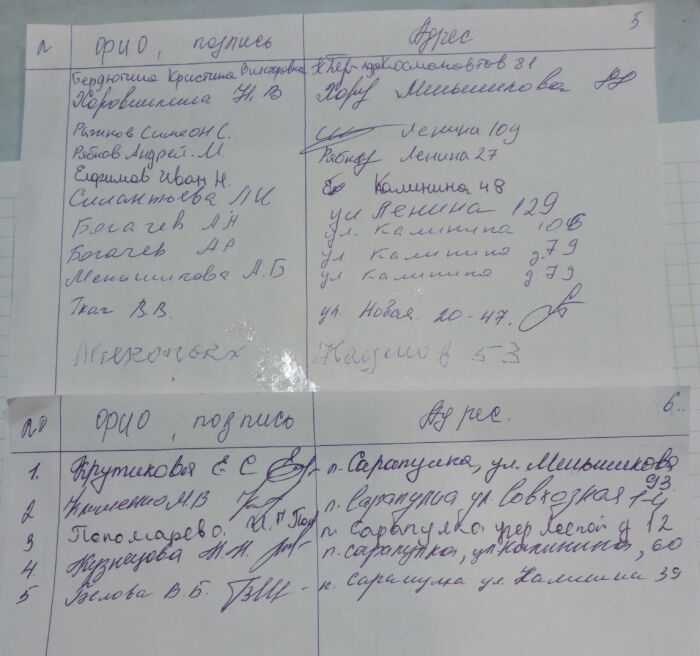 5
№ ФИО, подпись Адрес
Бердюгина Кристина Викторовна Космонавтов 81
Хоровинкина Н.В Меньшикова
Рязанов Симеон С. Ленина 109
Рябков Андрей. М. Ленина 27
Елфимов Иван Н. Калинина 48
Силантьева Л К ул Ленина 129
Богачев А Н ул. Калинина 106
Богачев А Р ул Калинина д. 79
Меньшикова А. Б ул Калинина д 79
Ткач В.В. ул. Новая 20-47.
53
6
№ ФИО, подпись Адрес.
1. Крутикова Е С п. Сарапулка, ул. Меньшикова
93
2 Клименко М В п. Сарапулка ул Совхозная 1-4
3 Пономарева п. Сарапулка Лесной д 12
4. Кузнецова Н. Н. п. Сарапулка, ул Калинина, 60
5 Белова В. Б. п. Сарапулка ул Калинина 39